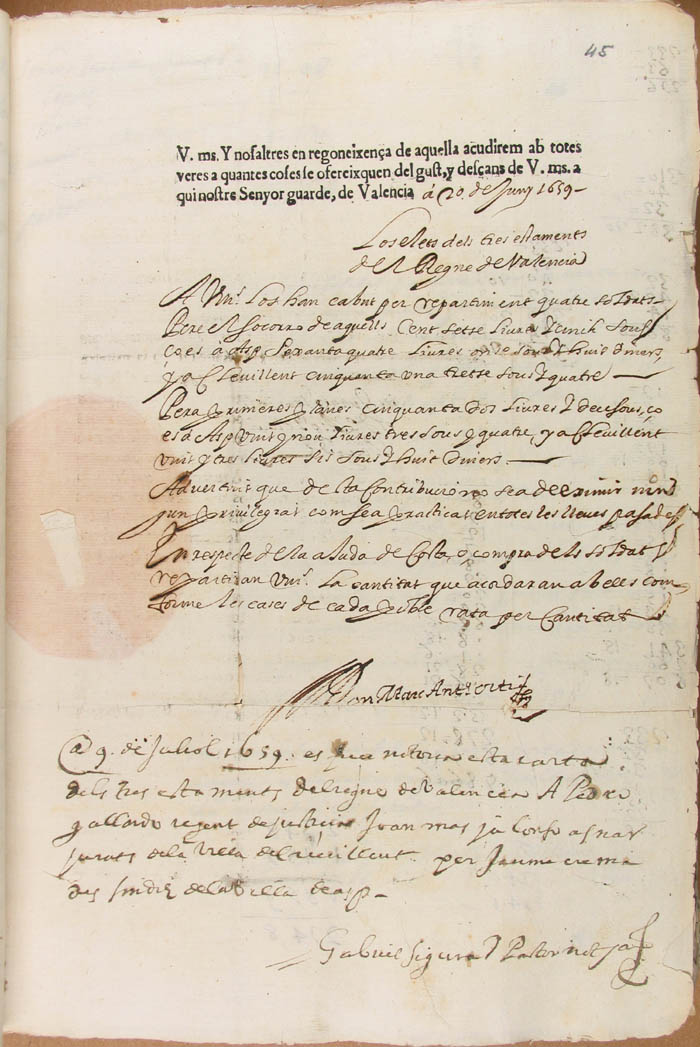 45
V. ms. Y nosaltres en regoneixença de aquella acudirem ab totes
veres a quantes coses se ofereixquen del gust, y desçans de V. ms. a
qui nostre Senyor guarde, de Valencia á 20 de Juny 1659
Los elets dels tres estaments
del Regne de Valencia
A Vms. Los han cabut per repartiment quatre soldats
Pere el socorro de aquells, Cent setse liures y cinch sous
ço es á Asp sexanta quatre liures onse sous y huit diners
y a Creuillent cinquanta una tretse sous y quatre
Pera primeres planes cinquanta dos liures y deu sous, ço
es á Asp vint y nou liures tres sous y quatre, y a Creuillent
vint y tres liures sis sous y huit diners.
Advertint que de esta Contribucio no sea de eximir nin
gun privilegiat com sea practicat en totes les lleues pasades
En respecte de la aiuda de Costa, o compra dels soldats
repartiran Vms. la cantitat que acordaran ab ells com
forme les cases de cada poble rata per Cantitat
Don Marc Ant
@ 9. de Juliol 1659. es esta carta
dels tres estaments del regne de Valencia A Pedro
gallardo regent de justicia Joan mas
jurats de la Villa de Creuillent per Jaume
sindic de la Villa de asp
Gabriel Sigura y Pastor not